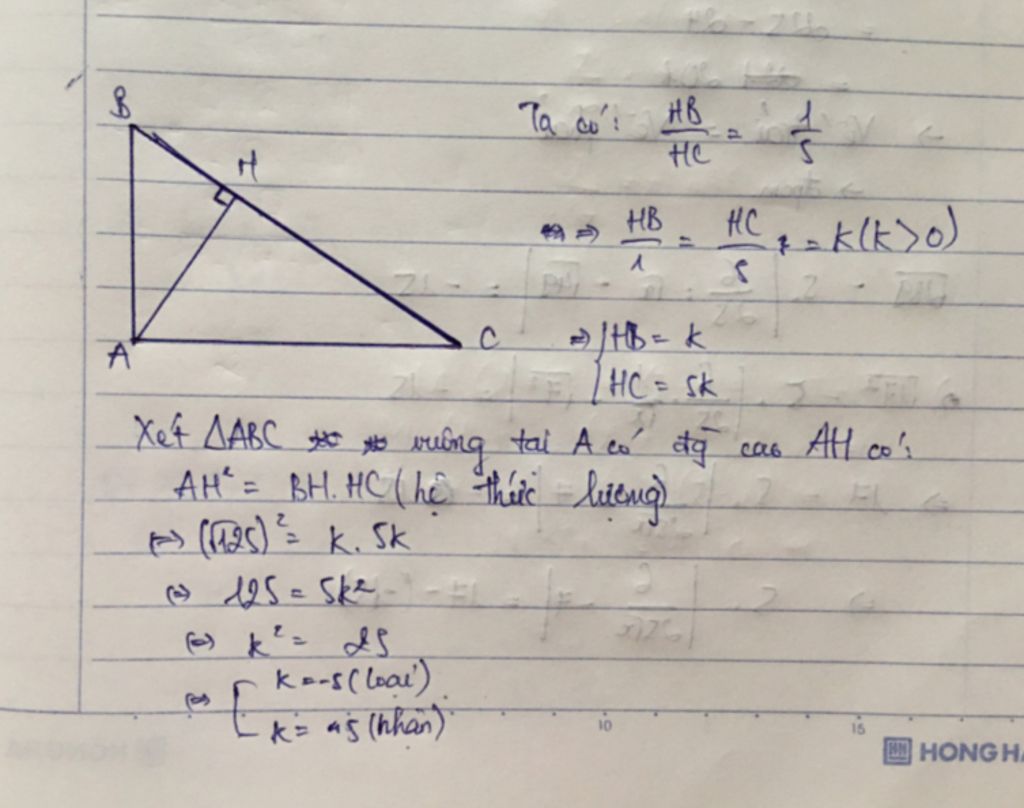 B
H
A
C
Ta có: HB/HC = 1/5
=> HB/1 = HC/5 = k(k>0)
=> { HB = k
HC = 5k
Xét ΔABC vuông tại A có đg cao AH có:
AH² = BH.HC (hệ thức lượng)
<=> (√125)² = k. 5k
<=> 125 = 5k²
<=> k² = 25
<=> [ k = -5 (loại)
k = 5 (nhận)
10 15
HONG HA